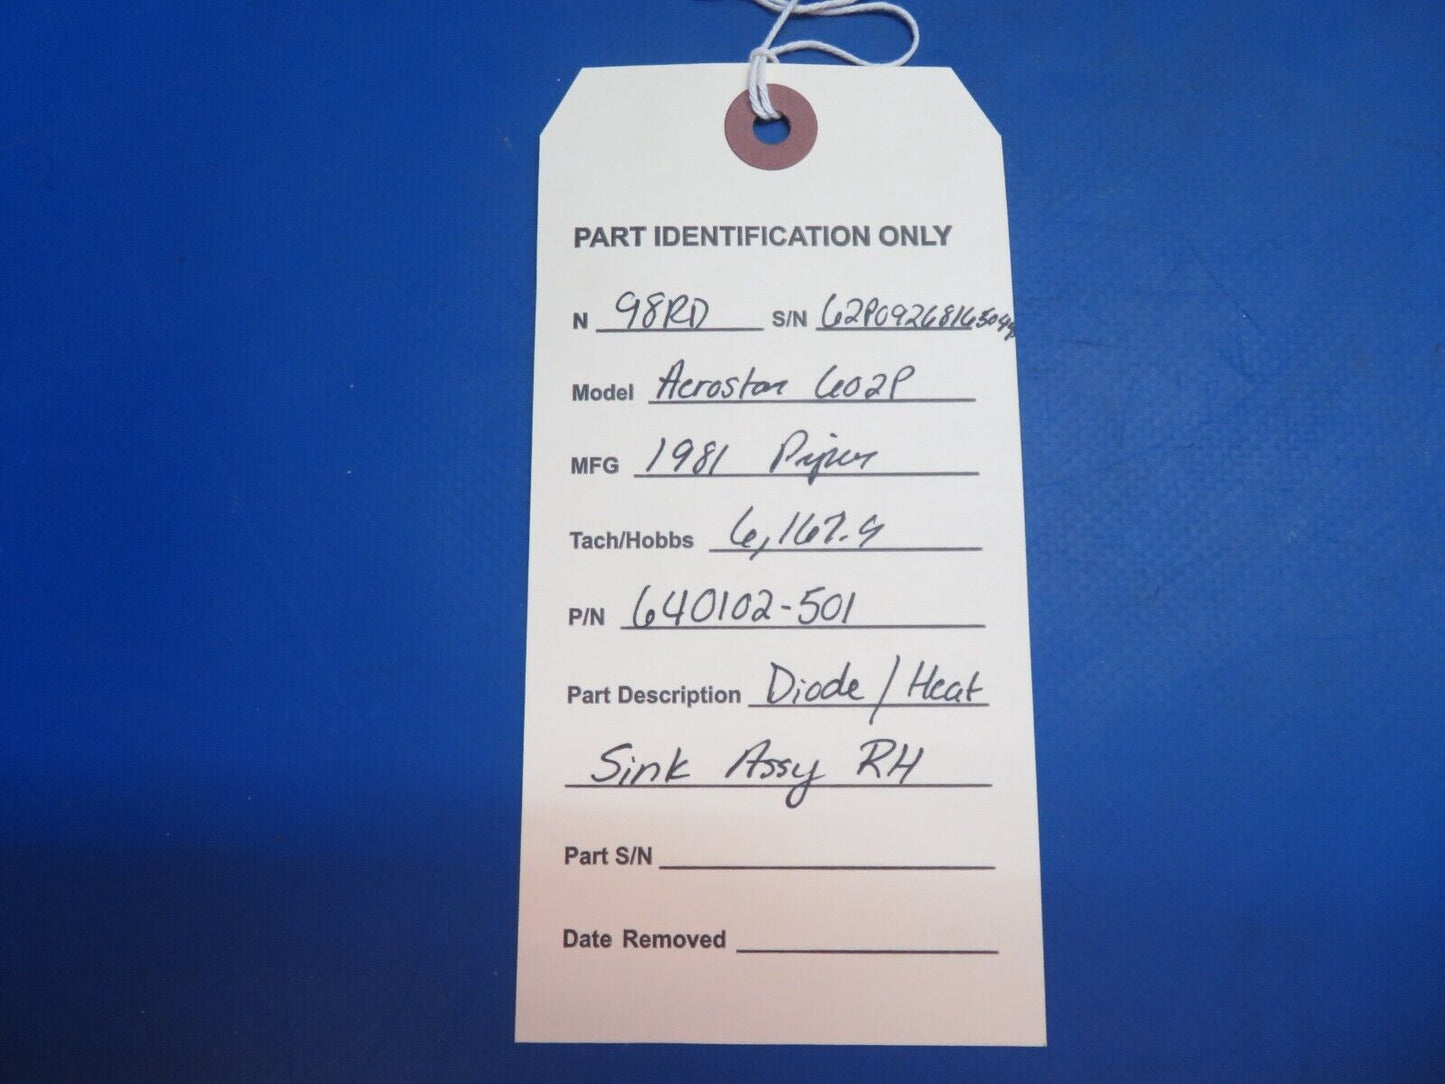 PART IDENTIFICATION ONLY
N 98RD S/N 62P09268165049
Model Aerostar 602P
MFG 1981 Piper
Tach/Hobbs 6,167.9
P/N 640102-501
Part Description Diode / Heat
Sink Assy RH
Part S/N
Date Removed